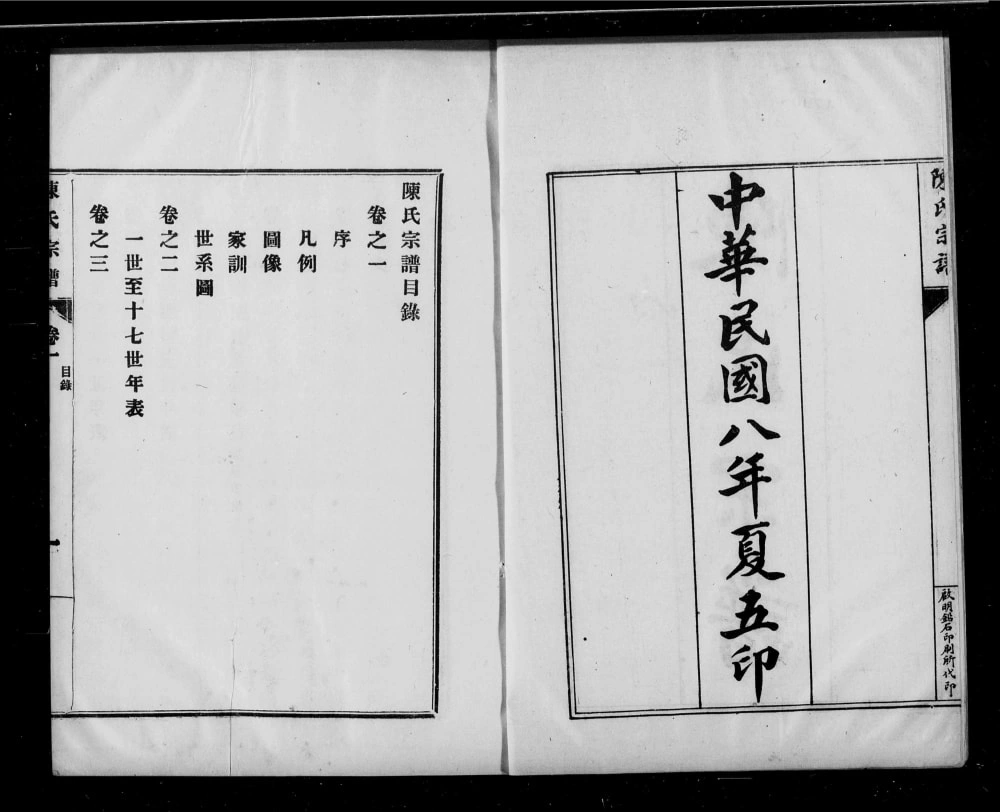 陳氏宗譜
啟明鉛石印刷所代印
中華民國八年夏五印
陳氏宗譜目錄
卷之一
序
凡例
圖像
家訓
世系圖
卷之二
一世至十七世年表
卷之三
陳氏宗譜
卷一
目錄
一